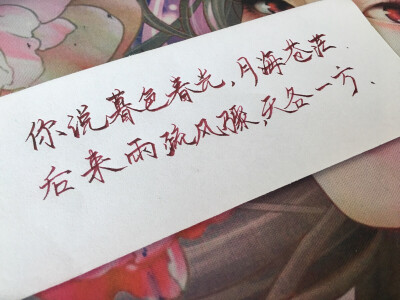 你说暮色春去,月海苍茫.
后来雨疏风骤,天各一方.